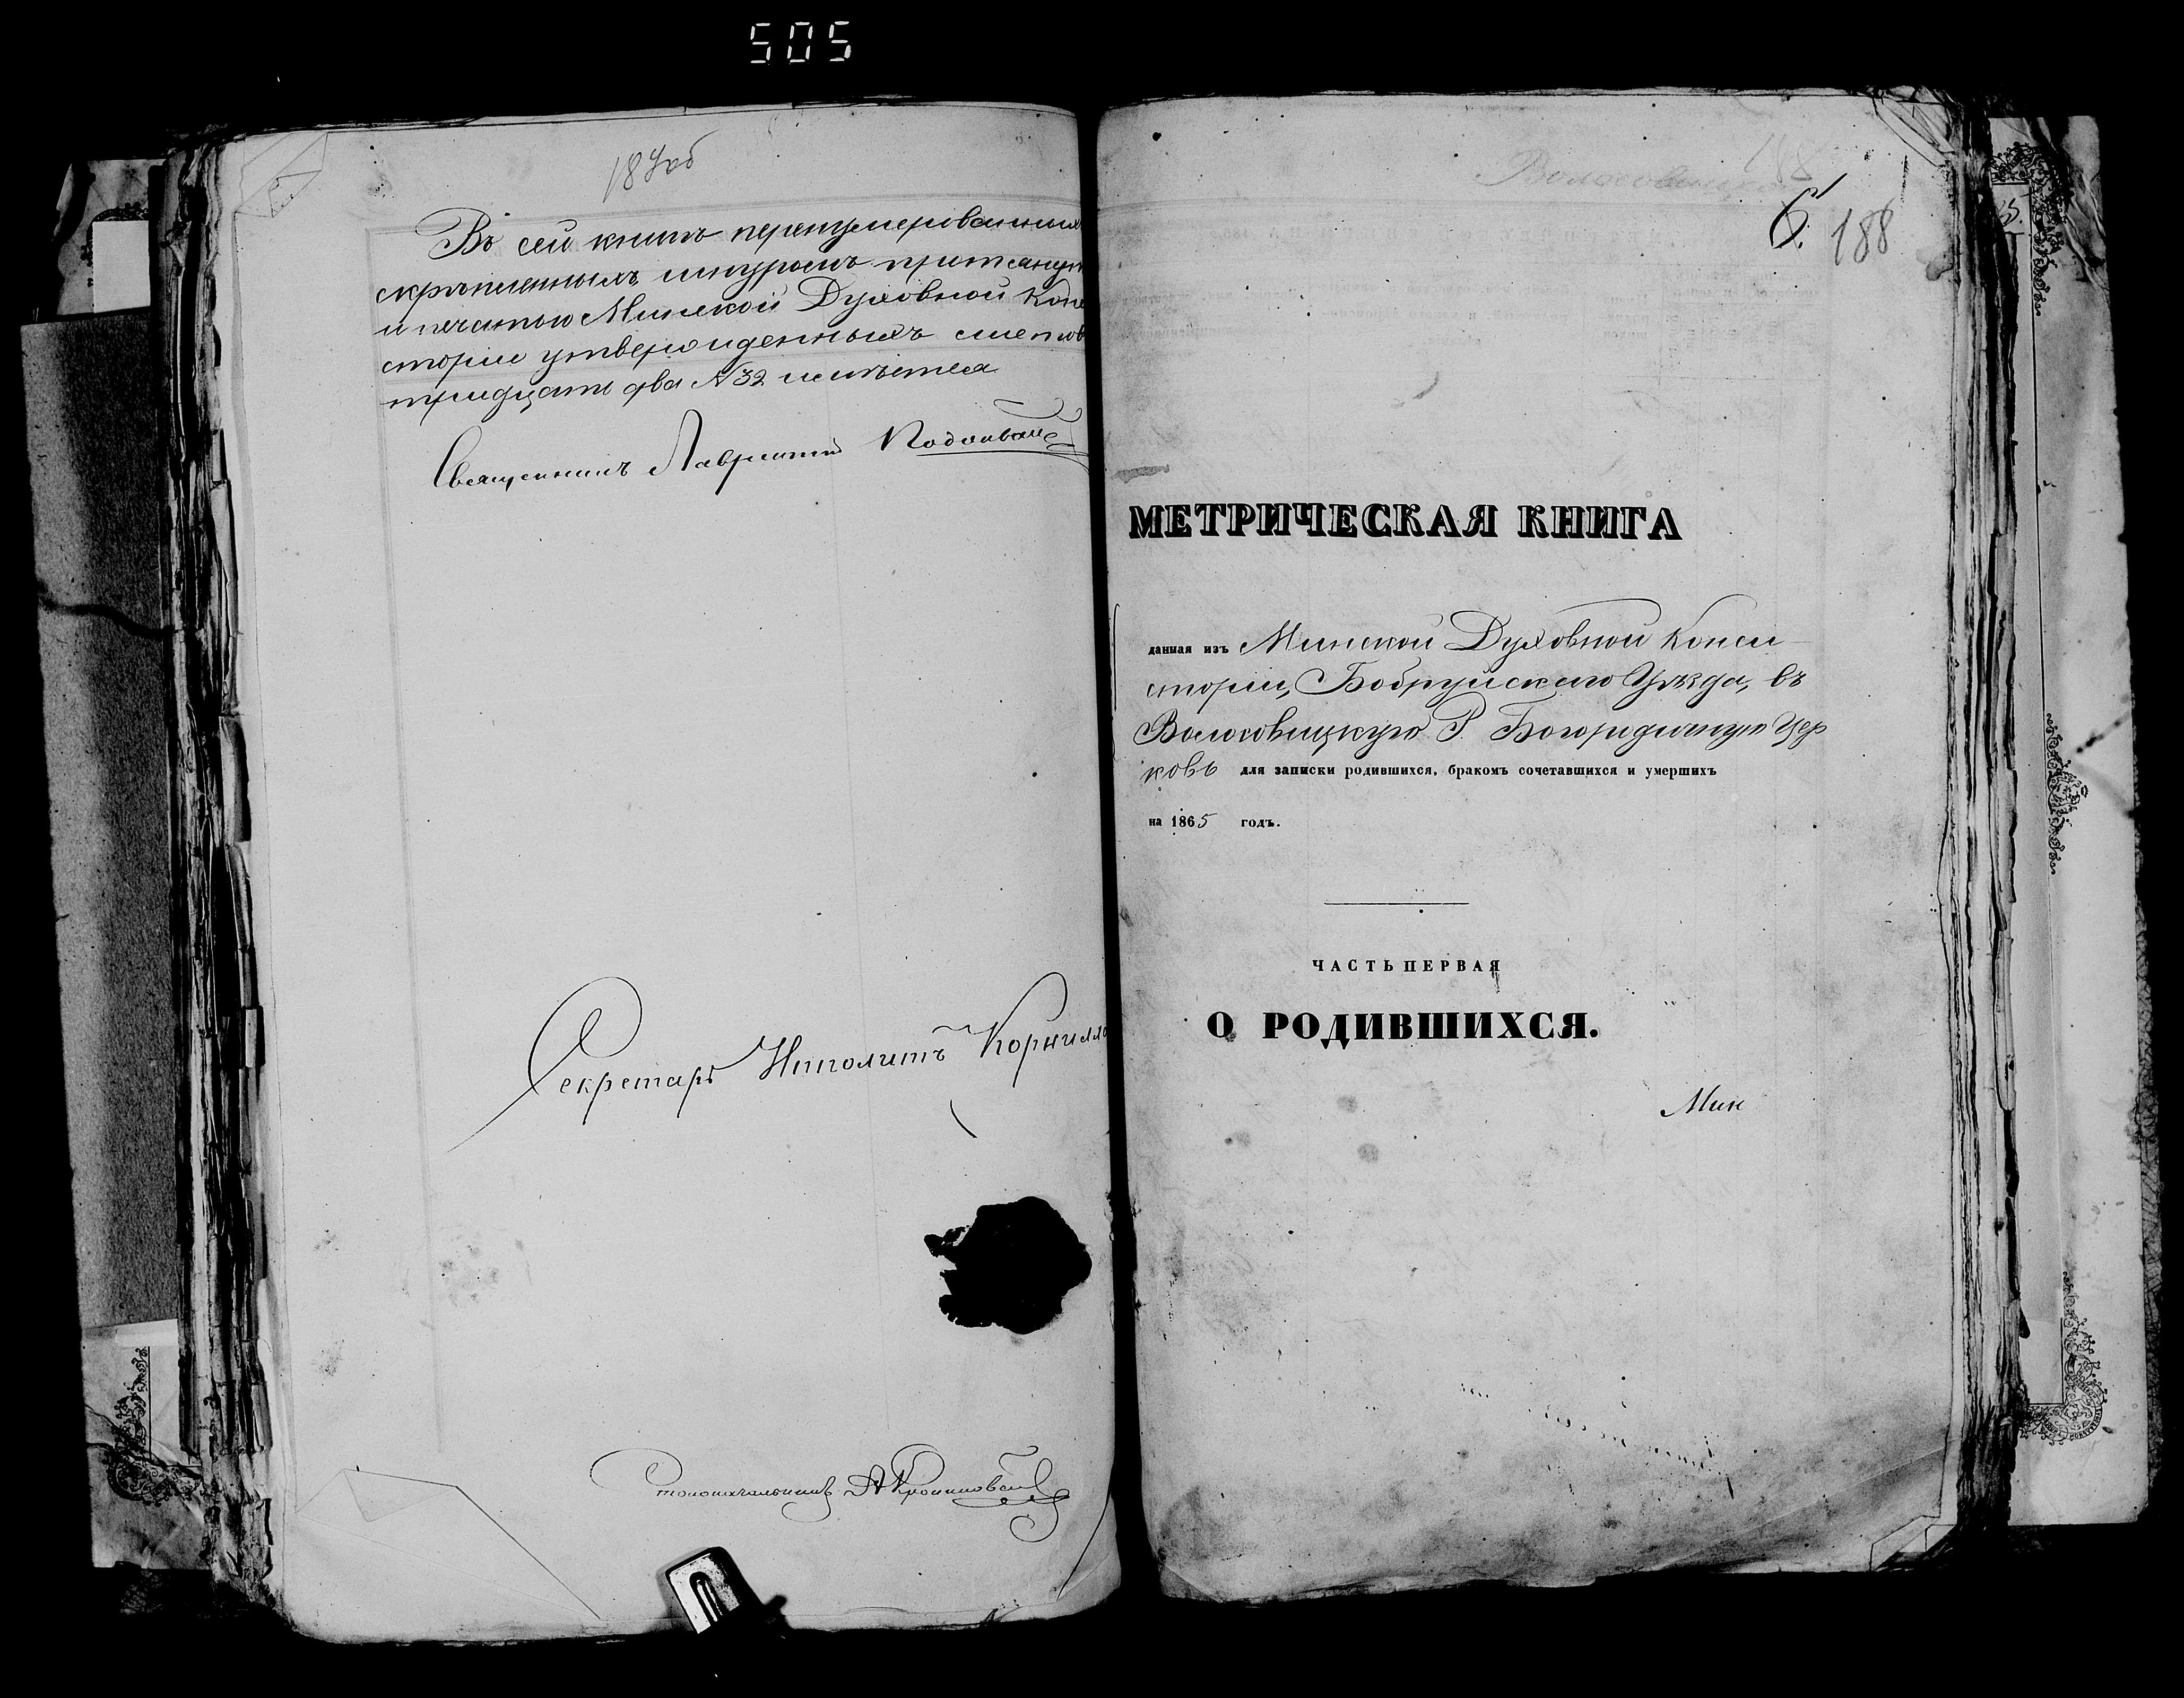 505
187об
Въ сей книгѣ перенумерованныхъ
скрѣпленныхъ шнуромъ притянут
и печатью Минской Духовной Конс
сторіи утвержденныхъ листов
тридцать два №32 имѣется
Священникъ Лаврентій
Секретарь Иполитъ Корнилло
Столоначальникъ
188
6.
188
МЕТРИЧЕСКАЯ КНИГА
данная изъ Минской Духовной Конси-
сторіи, Бобруйскаго Уѣзда, въ
Волосовицкую Р. Богородичную Цер
ковь для записки родившихся, бракомъ сочетавшихся и умершихъ
на 1865 годъ.
ЧАСТЬ ПЕРВАЯ
О РОДИВШИХСЯ.
Мин